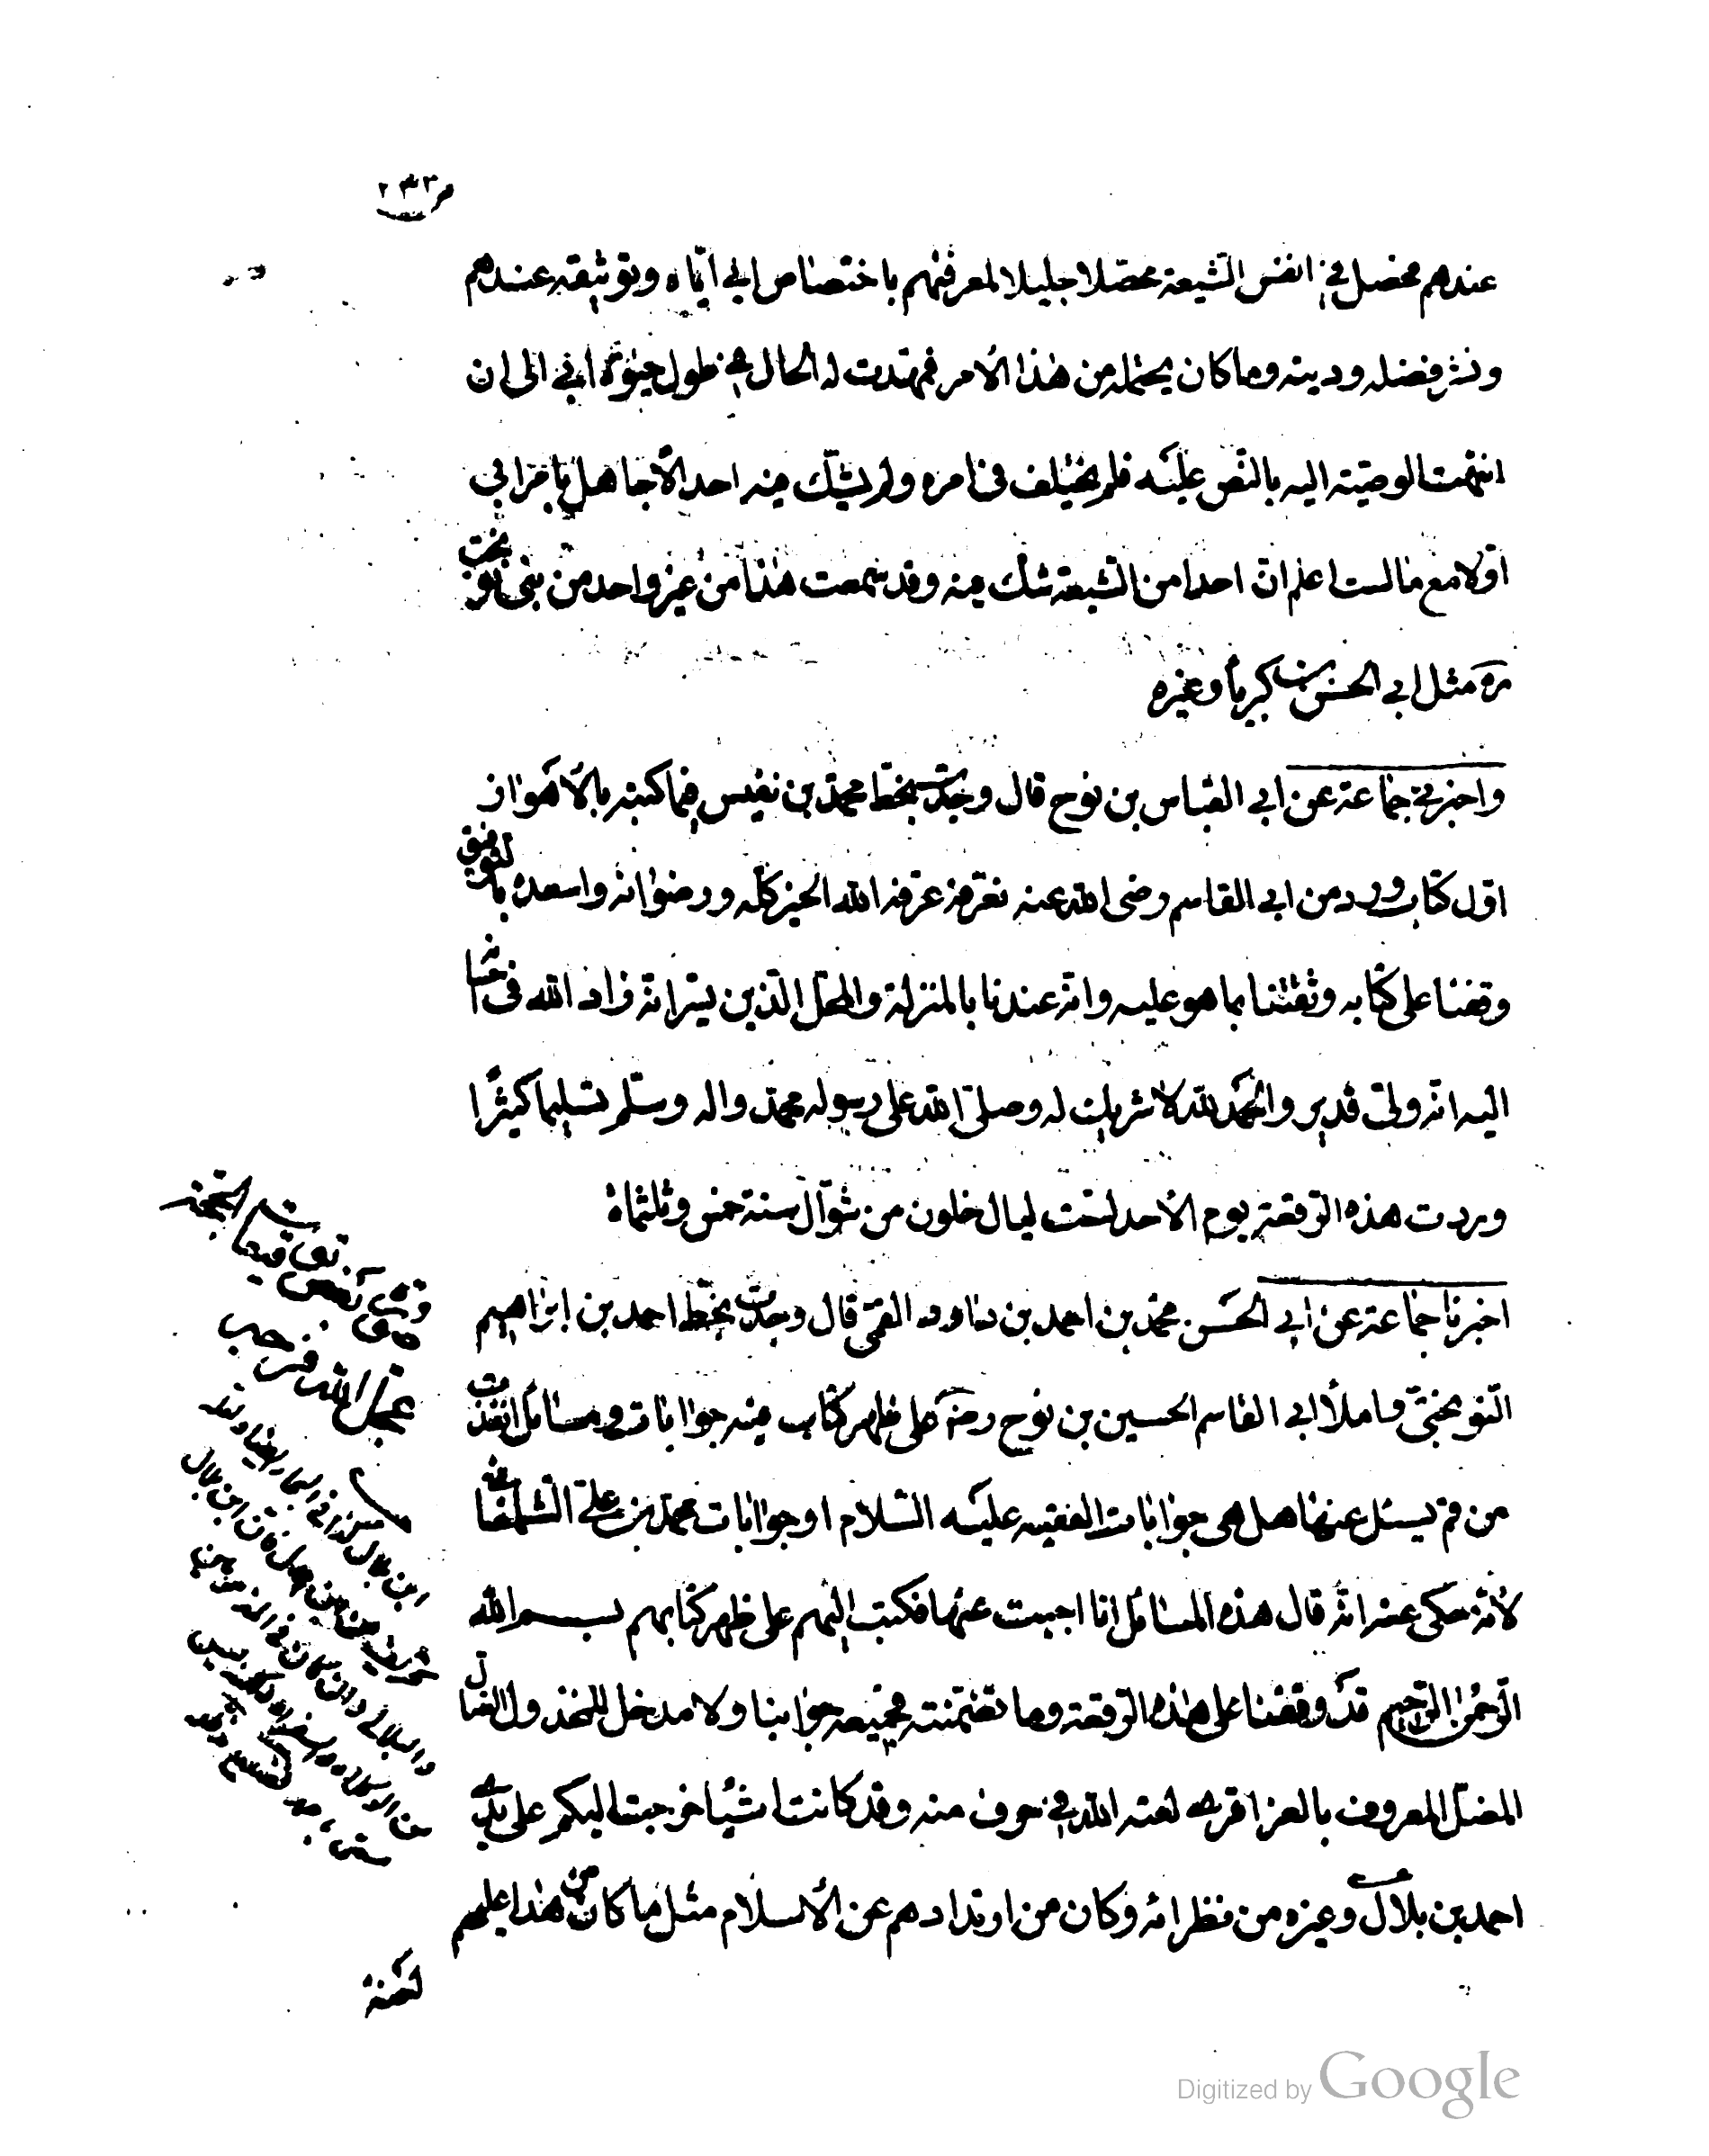 ص ٢٣٢
عندهم فحصل في انفس الشيعة محصلا جليلا لمعرفتهم باختصاص ابي اياه وتوثيقه عندهم
ونشر فضله ودينه وما كان يحتمله من هذا الأمر فمهدت له الحال في طول حيوة ابي الى ان
انتهت الوصية اليه بالنص عليه فلم يختلف في امره ولم يشك فيه احد الا جاهل بامر ابي
اولا مع ما لست اعلم ان احدا من الشيعة شك فيه وقد سمعت هذا من غير واحد من بني نوبخت
ره مثل ابي الحسن بن كبرياء وغيره
واخبرني جماعة عن ابي العباس بن نوح قال وجدت بخط محمد بن نفيس فيما كتبه بالأهواز
اول كتاب ورد من ابي القاسم رضى الله عنه نعرفه عرفه الله الخير كله ورضوانه واسعده بالتوفيق
وقفنا على كتابه وثقتنا بما هو عليه وانه عندنا بالمنزلة والمحل الذين يسرانه زاد الله في احسا
اليه انه ولي قدير والحمد لله لا شريك له وصلى الله على رسوله محمد واله وسلم تسليما كثيرًا
وردت هذه الرقعة يوم الأحد لست ليال خلون من شوال سنة خمس وثلثمأة
اخبرنا جماعة عن ابي الحسن محمد بن احمد بن داود القمي قال وجدت بخط احمد بن ابراهيم
النوبختي واملأ ابي القاسم الحسين بن نوح رضه على ظهر كتاب فيه جوابات ومسائل انفذت
من قم يسئل عنها هل هي جوابات الفقيه عليه السلام او جوابات محمد بن علي الشلمغاني
لأنه حكى عنه انه قال هذه المسائل انا اجبت عنها فكتب اليهم على ظهر كتابهم بسم الله
الرحمن الرحيم قد وقفنا على هذه الرقعة وما تضمنته فجميعه جوابنا ولا مدخل للمخذول الضال
المضل المعروف بالعزاقرى لعنه الله في حرف منه وقد كانت اشياء خرجت اليكم على يدي
احمد بن بلال وغيره من نظرائه وكان من ارتدادهم عن الأسلام مثل ما كان من هذا عليهم
لعنة
عجل الله فرجه
Digitized by Google